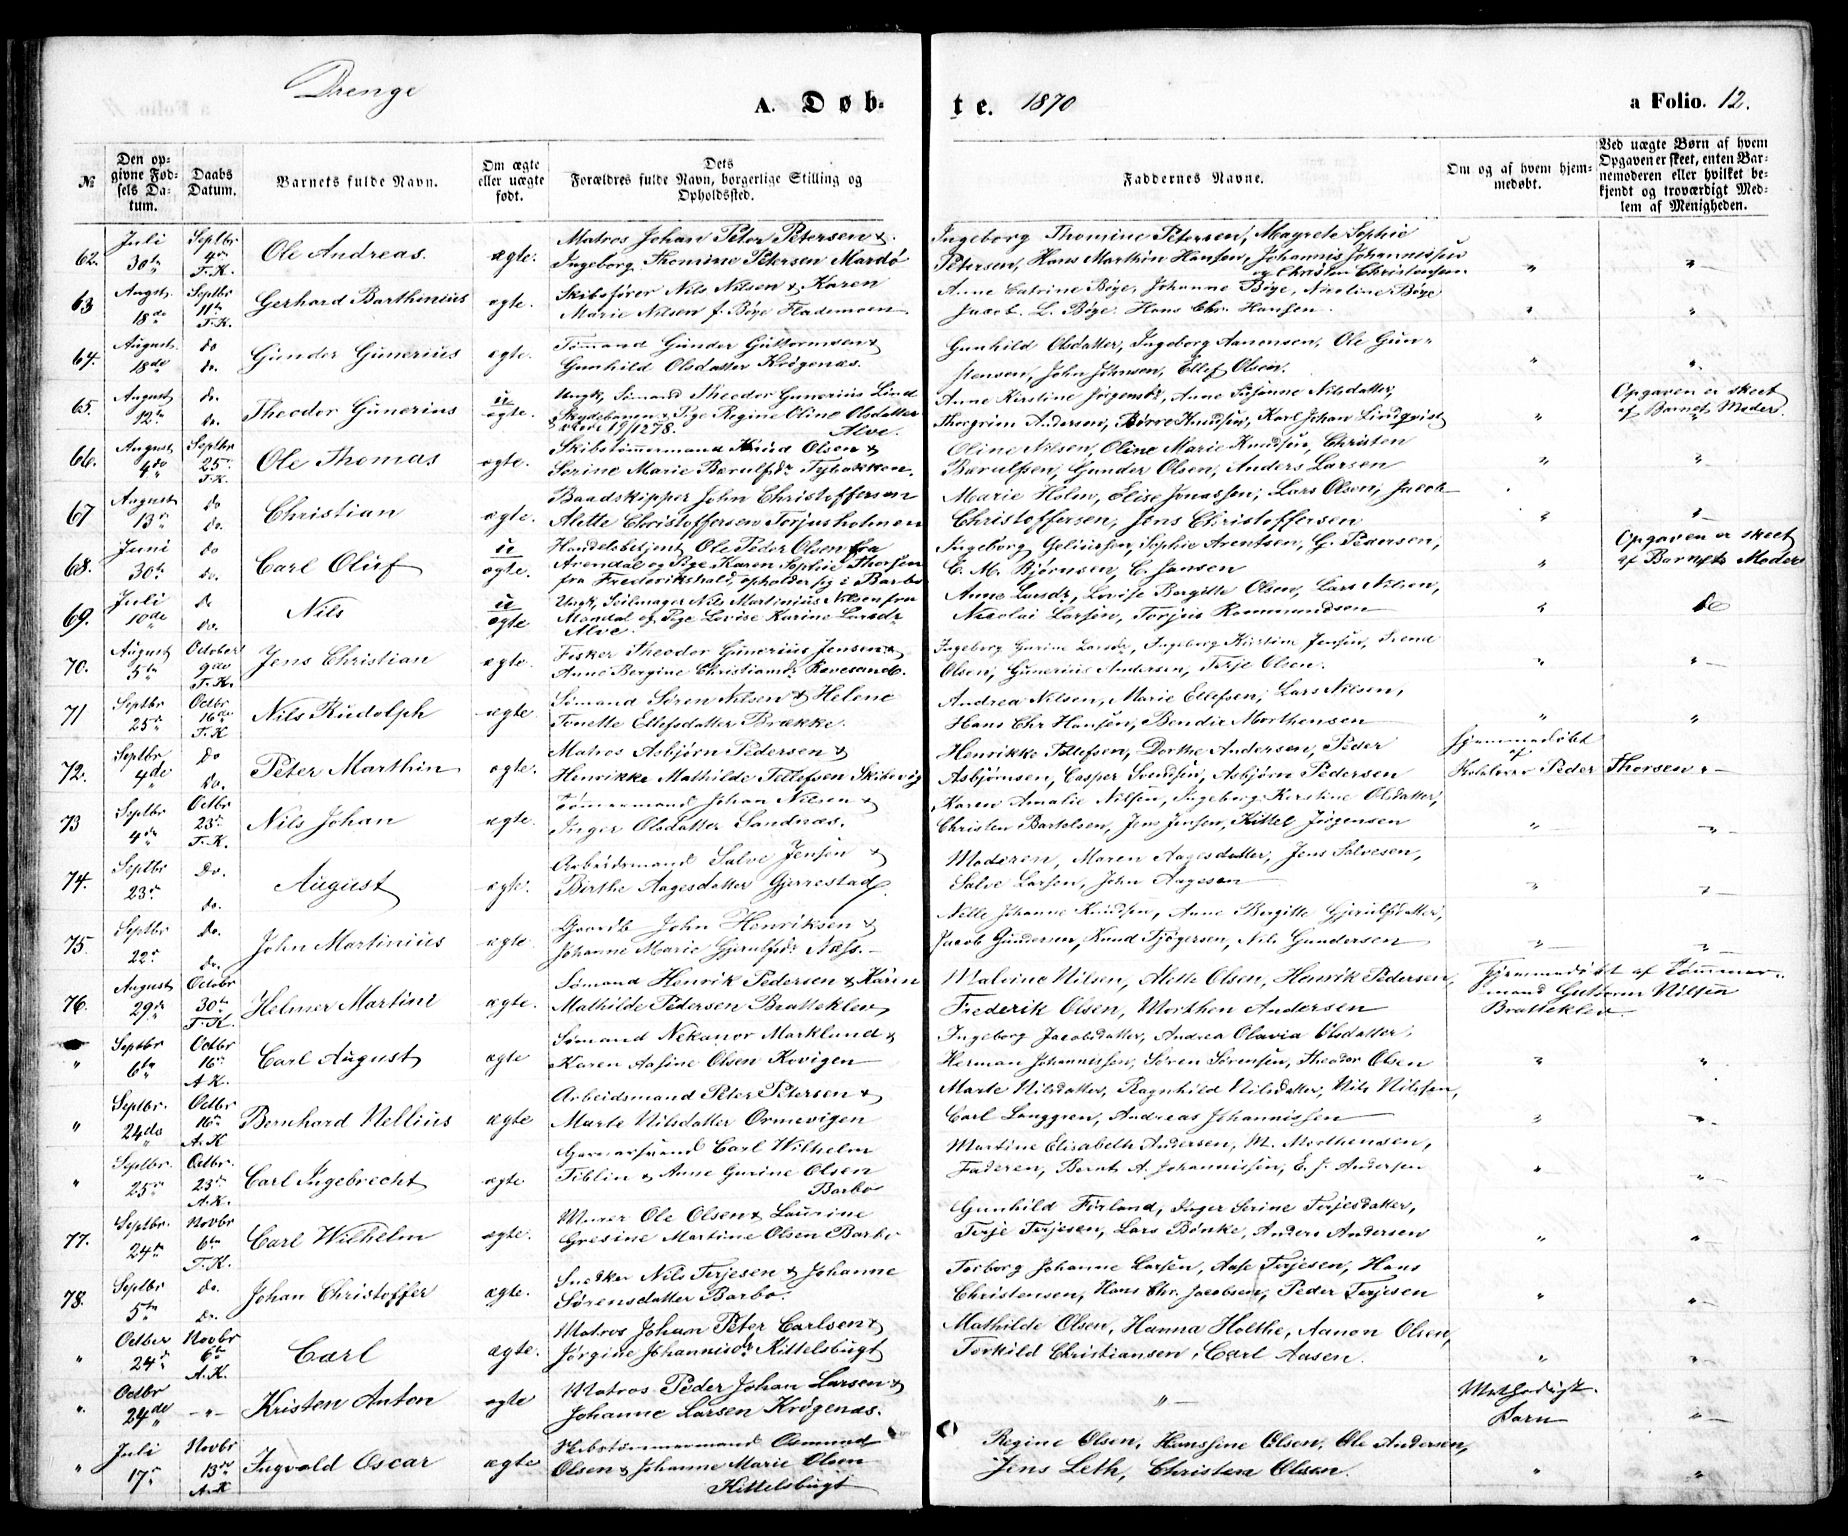 Drenge
A. Døb-
te. 1870
a Folio. 12.
№
Den opgivne Fødsels Datum.
Daabs Datum.
Barnets fulde Navn.
Om ægte eller uægte født.
Dets Forældres fulde Navn, borgerlige Stilling og Opholdssted.
Faddernes Navne.
Om og af hvem hjemmedøbt.
Ved uægte Børn af hvem Opgaven er skeet, enten Barnemoderen eller hvilket bekjendt og troværdigt Medlem af Menigheden.
62. Juli 30te Septbr 4de T.K. Ole Andreas. ægte. Matros Johan Peter Petersen & Ingeborg Thomine Petersen Mardø
Ingeborg Thomine Petersen, Magrete Sophie Petersen, Hans Marthin Hansen, Johannis Johannissen og Christen Christensen " "
63 Augst. 18de Septbr 11te T.K. Gerhard Barthinius ægte. Skibsfører Nils Nilsen & Karen Marie Nilsen f. Bøye Flademoen
Anne Catrine Bøye, Johanne Bøye, Nicoline Bøye Jacob L. Bøye. Hans Chr. Hansen. " "
64. August. 18de do do. Gunder Gunerius ægte. Tømand Gunder Guttormsen & Gunhild Olsdatter Krøgenæs.
Gunhild Olsdatter, Ingeborg Aanonsen, Ole Gunstensen, John Johnsen, Ellef Olsen. " "
65. August 12te do. do. Theodor Gunerius u ægte. Ungk. Sømand Theodor Gunerius Lind Skydebanen & Pige Regine Oline Olsdatter Alve.
19/12 78.
Anne Kirstine Jørgensdr, Anne Susanne Nilsdatter, Thorgrim Andersen, Børre Knudsen, Karl Johan Lindqvist " Opgaven er skeet af Barnets Moder.
66. August 4de Septbr 25. T.K. Ole Thomas ægte. Skibstømmermand Knud Olsen & Serine Marie Bærulfsdr Tybakken.
Oline Nilsen, Oline Marie Knudsen, Christen Bærulfsen, Gunder Olsen, Anders Larsen " "
67 August 13de do do. Christian ægte. Baadskipper John Christoffersen Alette Christoffersen Torjusholmen
Marie Holm, Elise Jonassen, Lars Olsen, Jacob Christoffersen, Jens Christoffersen " "
68. Juni 30te do do. Carl Oluf u ægte. Handelsbetjent Ole Peder Olsen fra Arendal og Pige Karen Sophie Thorsen fra Frederikshald, opholder sig i Barbo
Ingeborg Geliussen, Sophie Arentsen, G. Pedersen, C. M. Bjørnsen, C. Jansen " Opgaven er skeet af Barnets Moder
69. Juli 10de Do do. Nils u ægte Ungk. Seilmager Nils Martinius Nilsen fra Mandal og Pige Lovise Karine Larsdr Alve.
Anne Larsdr, Lovise Bergitte Olsen, Lars Nilsen, Nicolai Larsen, Torjus Rommundsen " do
70. August 5te October 9de T.K. Jens Christian ægte. Fisker Theodor Gunerius Jensen & Anne Bergine Christiansdr Revesand.
Ingeborg Gurine Larsdr, Ingeborg Kirstine Jensen, Trond Olsen, Gunerius Andersen, Terje Olsen. " "
71 Septbr 25de Octbr 16de T.K Nils Rudolph ægte. Sømand Søren Nilsen & Helene Tonette Ellefsdatter Brække.
Andrea Nilsen, Marie Ellefsen, Lars Nilsen, Hans Chr Hansen, Bendix Morthensen " "
72. Septbr 4de Do do. Peter Marthin ægte. Matros Asbjørn Pedersen & Henrikke Mathilde Tellefsen Skibvig
Henrikke Tellefsen, Dorthe Andersen, Peder Asbjørnsen, Casper Svendsen, Asbjørn Pedersen Hjemmedøbt af Skolelærer Peder Thorsen. "
73 Septbr 4de Octbr 23de T.K. Nils Johan ægte. Tømmermand Johan Nilsen & Inger Olsdatter Sandnæs.
Karen Amalie Nilsen, Ingeborg Kirstine Olsdatter, Christen Bartolsen, Jens Jensen, Kittel Jørgensen " "
74. Septbr 23de Do. do. August ægte. Arbeidsmand Salve Jensen & Birthe Aagesdatter Gjerrestad.
Moderen, Maren Aagesdatter, Jens Salvesen, Salve Larsen, John Aagesen " "
75. Septbr 22de do. do. John Martinius ægte Gaardb John Henriksen & Johanne Marie Gjerulfsdr Næss.
Nelle Johanne Knudsen, Anne Bergitte Gjerulfsdatter, Jacob Gundersen, Knud Tjøgersen, Nils Gundersen " "
76. August 29de Octobr 30te T.K. Helmer Martini ægte. Sømand Henrik Pedersen & Karen Mathilde Pedersen Bratteklev
Malvine Nilsen, Alette Olsen, Henrik Pedersen, Frederik Olsen, Morthen Andersen Hjemmedøbt af Tømmermand Guttorm Nilsen Bratteklev.
" Septbr 6te Octbr 16de A.K. Carl August ægte Sømand Nekanor Marklund & Karen Aasine Olsen Kovigen
Ingeborg Jacobsdatter, Andrea Olavia Olsdatter, Herman Johannessen, Søren Sørensen, Theodor Olsen " "
" Septbr. 24de Octbr 16de A.K Bernhard Nellius ægte Arbeidsmand Peter Petersen & Marte Nilsdatter Ormevigen
Marte Nilsdatter, Ragnhild Nilsdatter, Nils Nilssen, Carl Langgren, Andreas Johannissen " "
" Septbr. 25de Octbr. 23de A.K. Carl Ingebrecht ægte Garversvend Carl Wilhelm Tiblin & Anne Gurine Olsen Barbo
Martine Elisabeth Andersen, M. Morthensen, Faderen, Bernt A. Johannissen, E. J. Andersen " "
77. Septbr. 24de Novbr 6te T.K. Carl Wilhelm ægte. Murer Ole Olsen & Laurine Gresine Martine Olsen Barbo
Gunhild Førland, Inger Serine Terjesdatter, Terje Terjesen, Lars Bønke, Anders Andersen " "
78. Septbr 5te do. do. Johan Christoffer ægte. Snedker Nils Terjesen & Johanne Sørensdatter Barbo.
Torborg Johanne Larsen, Aase Terjesen, Hans Christensen, Hans Chr. Jacobsen, Peder Terjesen " "
" Octber 24de Novbr 6te A.K. Carl ægte. Matros Johan Peter Carlsen & Jørgine Johannisdr Kittelsbugt
Mathilde Olsen, Hanna Holthe, Aanon Olsen, Torkild Christiansen, Carl Aasen. " "
" Octbr 24de " Kristen Anton ægte Matros Peder Johan Larsen & Johanne Larsen Krøgenæs.
" Methodist Barn "
" Juli 17de Novbr 13de A.K Ingvald Oscar ægte Skibstømmermand Osmund Olsen & Johanne Marie Olsen Kittelsbugt
Regine Olsen, Hanssine Olsen, Ole Andersen, Jens Leth, Christen Olsen. " "